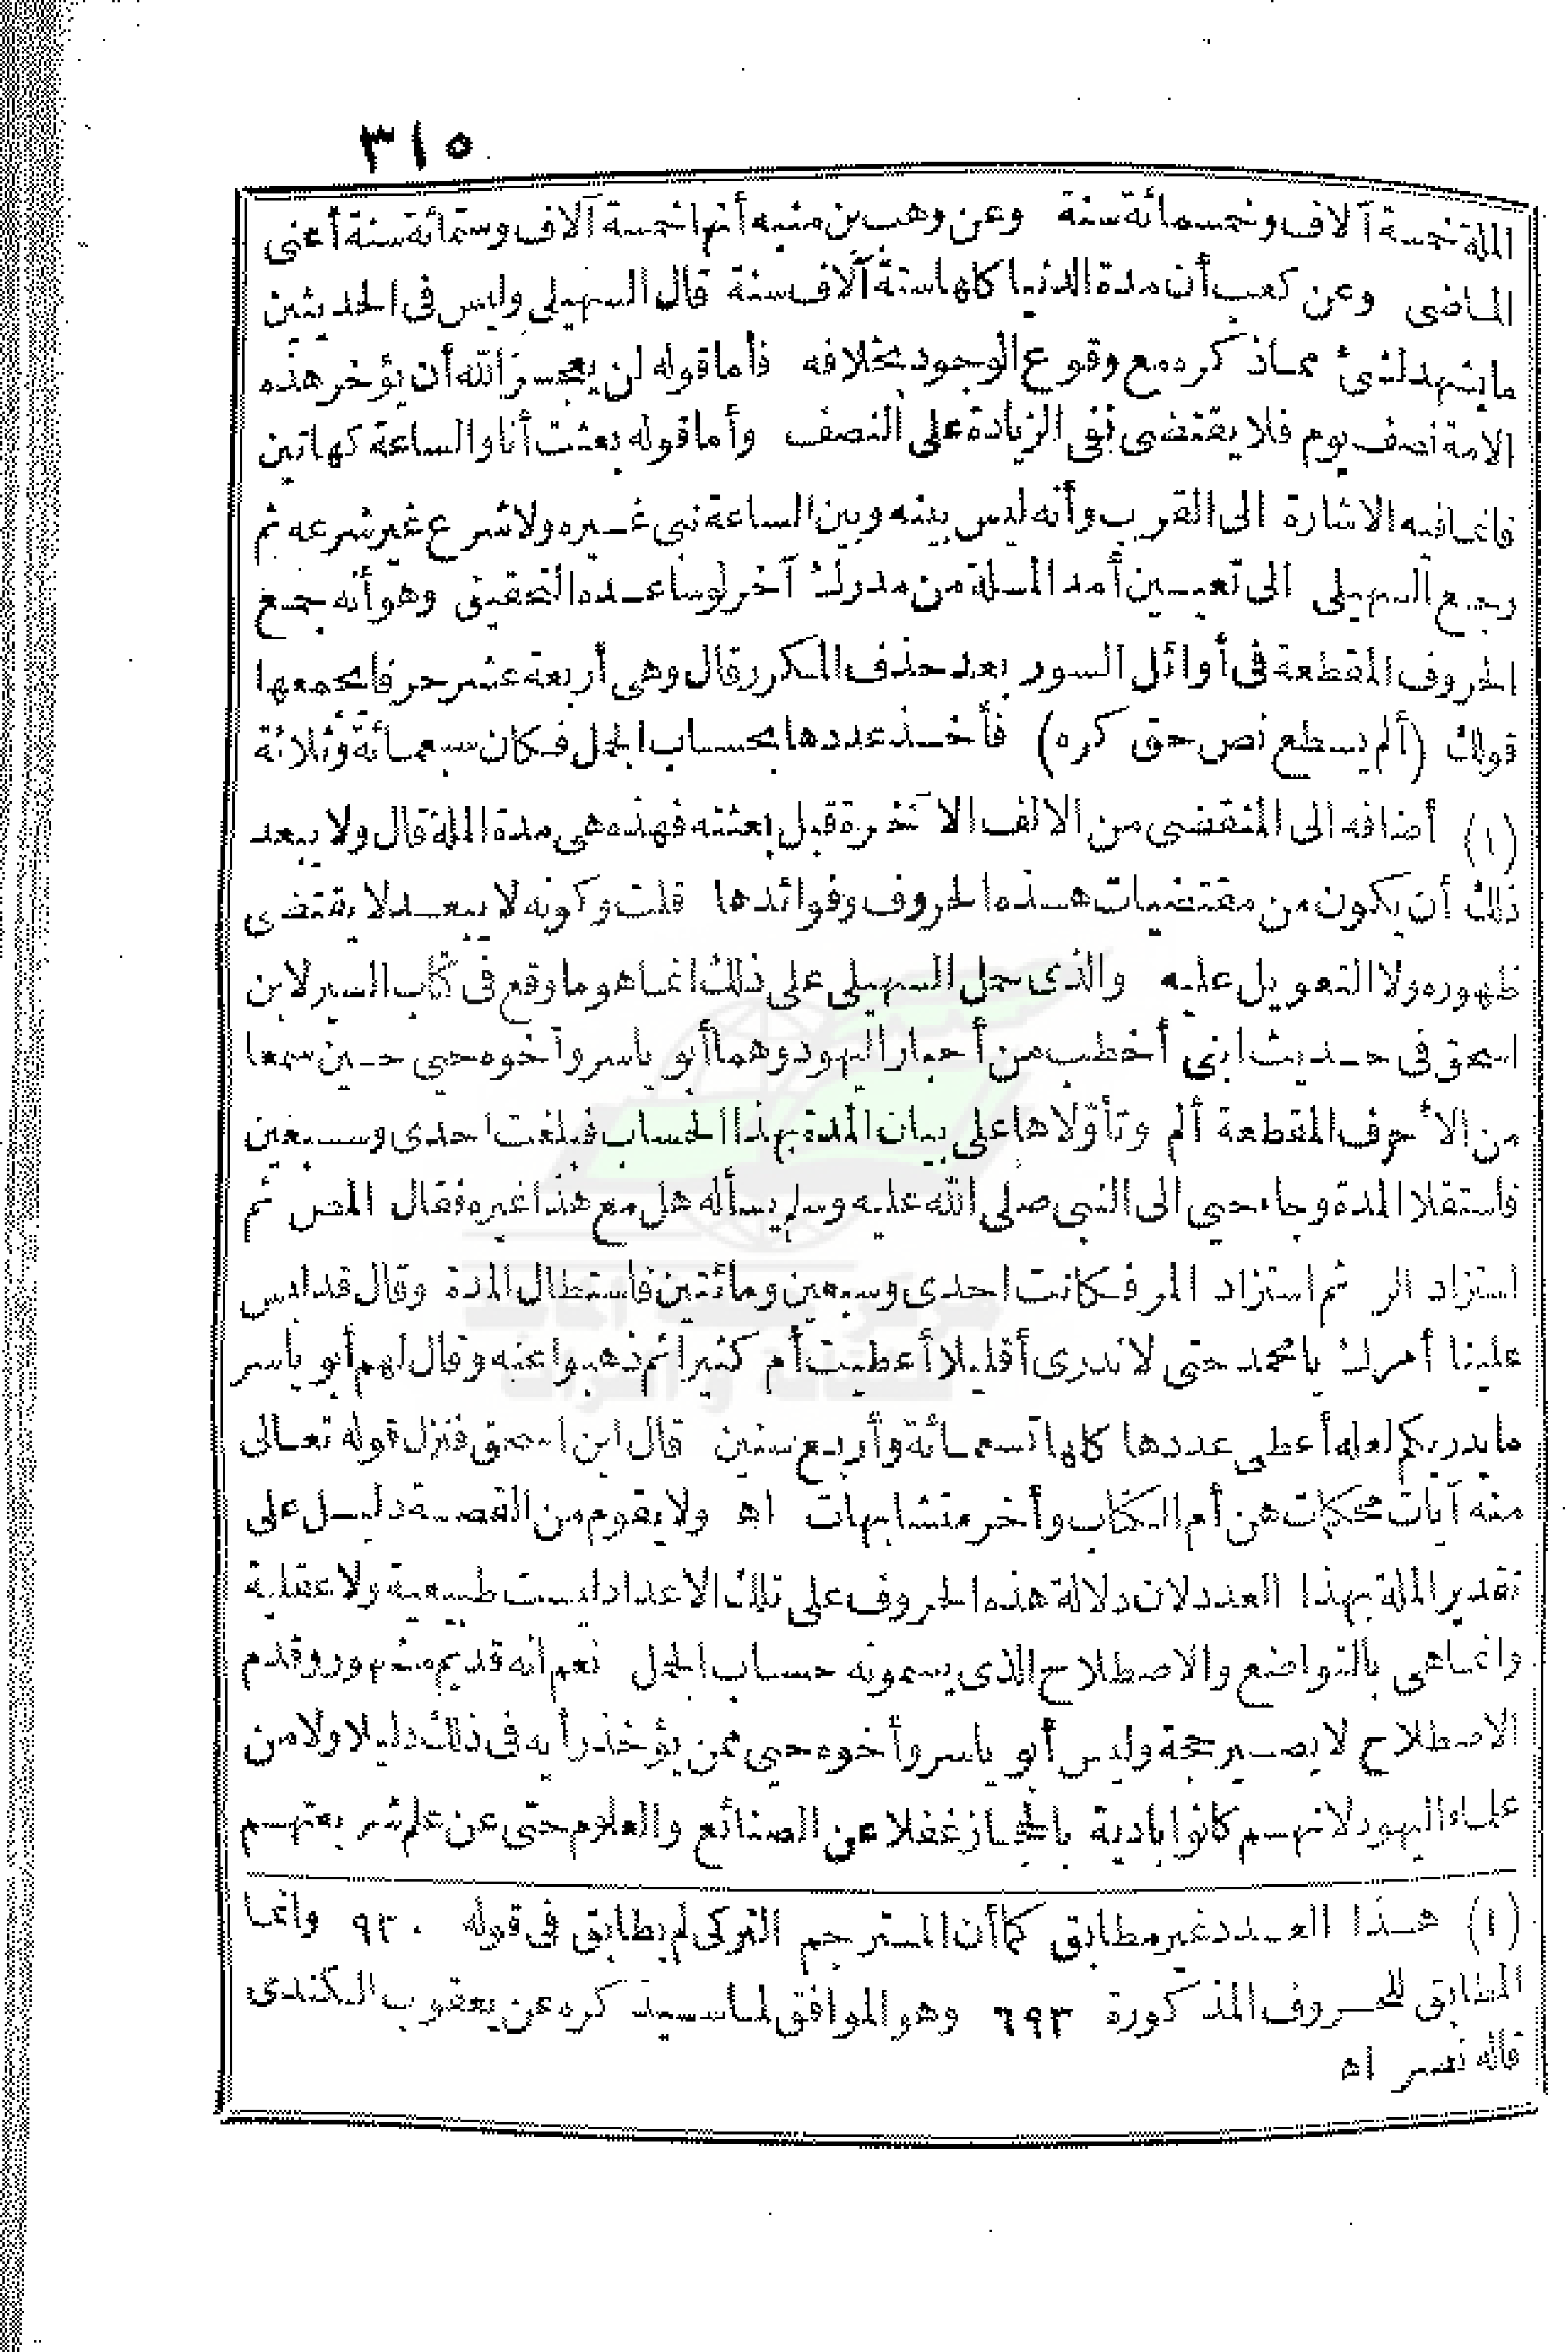 ٣١٥
الملة خمسة آلاف وخمسمائة سنة وعن وهب بن منبه أنها خمسة آلاف وستمائة سنة أعنى
الماضى وعن كعب أن مدة الدنيا كلها ستة آلاف سنة قال السهيلى وليس فى الحديثين
ما يشهد لشئ مماذ كره مع وقوع الوجود بخلافه فأما قوله لن يعجسز الله أن يؤخر هذه
الامة نصف يوم فلا يقتضى نفى الزيادة على النصف وأما قوله بعثت أنا والساعة كهاتين
فانما فيه الاشارة الى القرب وأنه ليس بينه وبين الساعة نبى غيره ولا شرع غير شرعه ثم
رجع السهيلى الى تعيين أمد الملة من مدرك آخر لو ساعده التحقيق وهو أنه جمع
الحروف المقطعة فى أوائل السور بعد حذف المكرر قال وهى أربعة عشر حرفا يجمعها
قولك (ألم يسطع نص حق كره) فأخذ عددها بحساب الجمل فكان سبعمائة وثلاثة
(١) أضافه الى المنقضى من الالف الآخرة قبل بعثته فهذه هى مدة الملة قال ولا يبعد
ذلك أن يكون من مقتضيات هذه الحروف وفوائدها قلت وكونه لا يبعد لا يقتضى
ظهوره ولا التعويل عليه والذى حمل السهيلى على ذلك انما هو ما وقع فى كتاب السير لابن
اسحق فى حديث ابنى أخطب من أحبار اليهود وهما أبو ياسر وأخوه حيى حين سمعا
من الأحرف المقطعة ألم وتأولاها على بيان المدة بهذا الحساب فبلغت احدى وسبعين
فاستقلا المدة وجاء حيى الى النبى صلى الله عليه وسلم يسأله هل مع هذا غيره فقال المص ثم
استزاد الر ثم استزاد المر فكانت احدى وسبعين ومائتين فاستطال المدة وقال قد لبس
علينا أمرك يا محمد حتى لا ندرى أقليلا أعطيت أم كثيرا ثم ذهبوا عنه وقال لهم أبو ياسر
ما يدريكم لعله أعطى عددها كلها تسعمائة وأربع سنين قال ابن اسحق فنزل قوله تعالى
منه آيات محكمات هن أم الكتاب وأخر متشابهات اه ولا يقوم من القصة دليل على
تقدير الملة بهذا العدد لان دلالة هذه الحروف على تلك الاعداد ليست طبيعية ولا عقلية
وانما هى بالتواضع والاصطلاح الذى يسمونه حساب الجمل نعم انه قديم مشهور وقدم
الاصطلاح لا يصير حجة وليس أبو ياسر وأخوه حيى ممن يؤخذ رأيه فى ذلك دليلا ولا من
علماء اليهود لانهم كانوا بادية بالحجاز غفلا عن الصنائع والعلوم حتى عن علم شريعتهم
(١) هذا العدد غير مطابق كما أن المترجم التركى لم يطابق فى قوله ٩٣٠ وانما
المطابق للحروف المذكورة ٦٩٣ وهو الموافق لما سيذكره عن يعقوب الكندى
قاله نصر اه